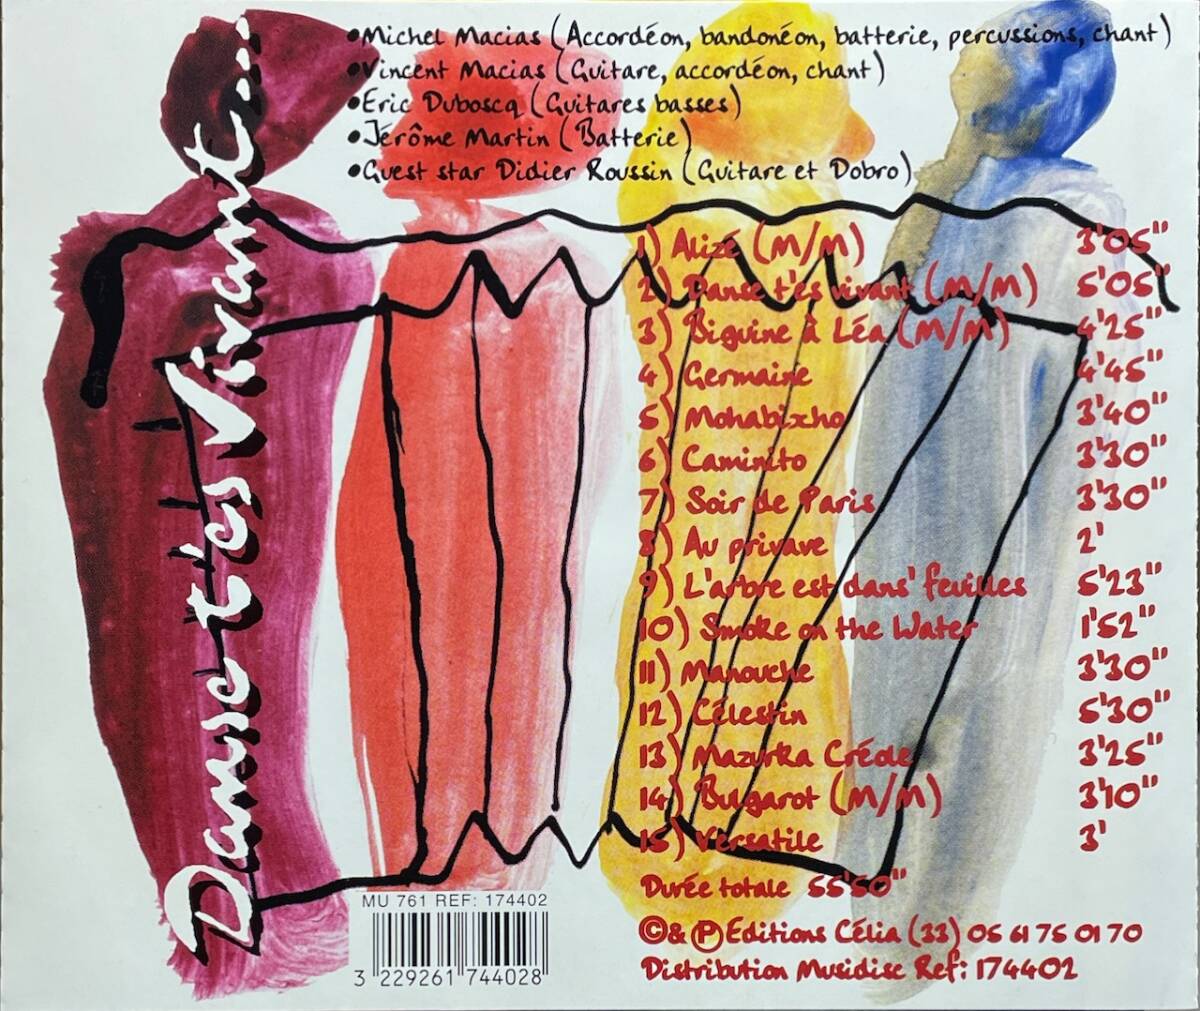 •Michel Macias (Accordéon, bandonéon, batterie, percussions, chant)
•Vincent Macias (Guitare, accordéon, chant)
•Eric Duboscq (Guitares basses)
•Jérôme Martin (Batterie)
•Guest star Didier Roussin (Guitare et Dobro)
Danse t'es Vivant...
1) Alizé (M/M) 3'05"
2) Danse t'es vivant (M/M) 5'05"
3) Biguine à Léa (M/M) 4'25"
4) Germaine 4'45"
5) Mohabixho 3'40"
6) Caminito 3'30"
7) Soir de Paris 3'30"
8) Au privave 2'
9) L'arbre est dans' feuilles 5'23"
10) Smoke on the Water 1'52"
11) Manouche 3'30"
12) Célestin 5'30"
13) Mazurka Créole 3'25"
14) Bulgarot (M/M) 3'10"
15) Versatile 3'
Durée totale 55'50"
©& ℗ Editions Célia (33) 05 61 75 01 70
Distribution Musidisc Ref: 174402
MU 761 REF: 174402
3 229261 744028